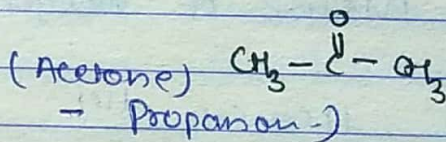 O
(Acetone) CH₃ – C – CH₃
– Propanon-)